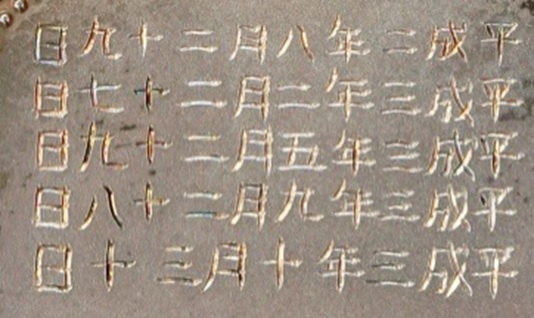 平成二年八月二十九日
平成三年二月二十七日
平成三年五月二十九日
平成三年九月二十八日
平成三年十月三十日